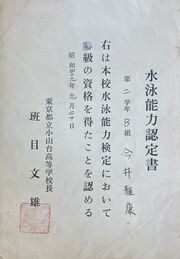 水泳能力認定書
第二学年B組 今井雅
右は本校水泳能力検定において
級の資格を得たことを認める
昭和 年九月二十日
東京都立小山台高等学校長
班目文雄